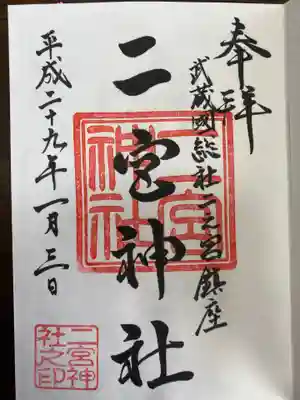 奉拝
武蔵國総社二之宮鎮座
二宮神社
平成二十九年一月三日
二宮神社
二宮神社之印